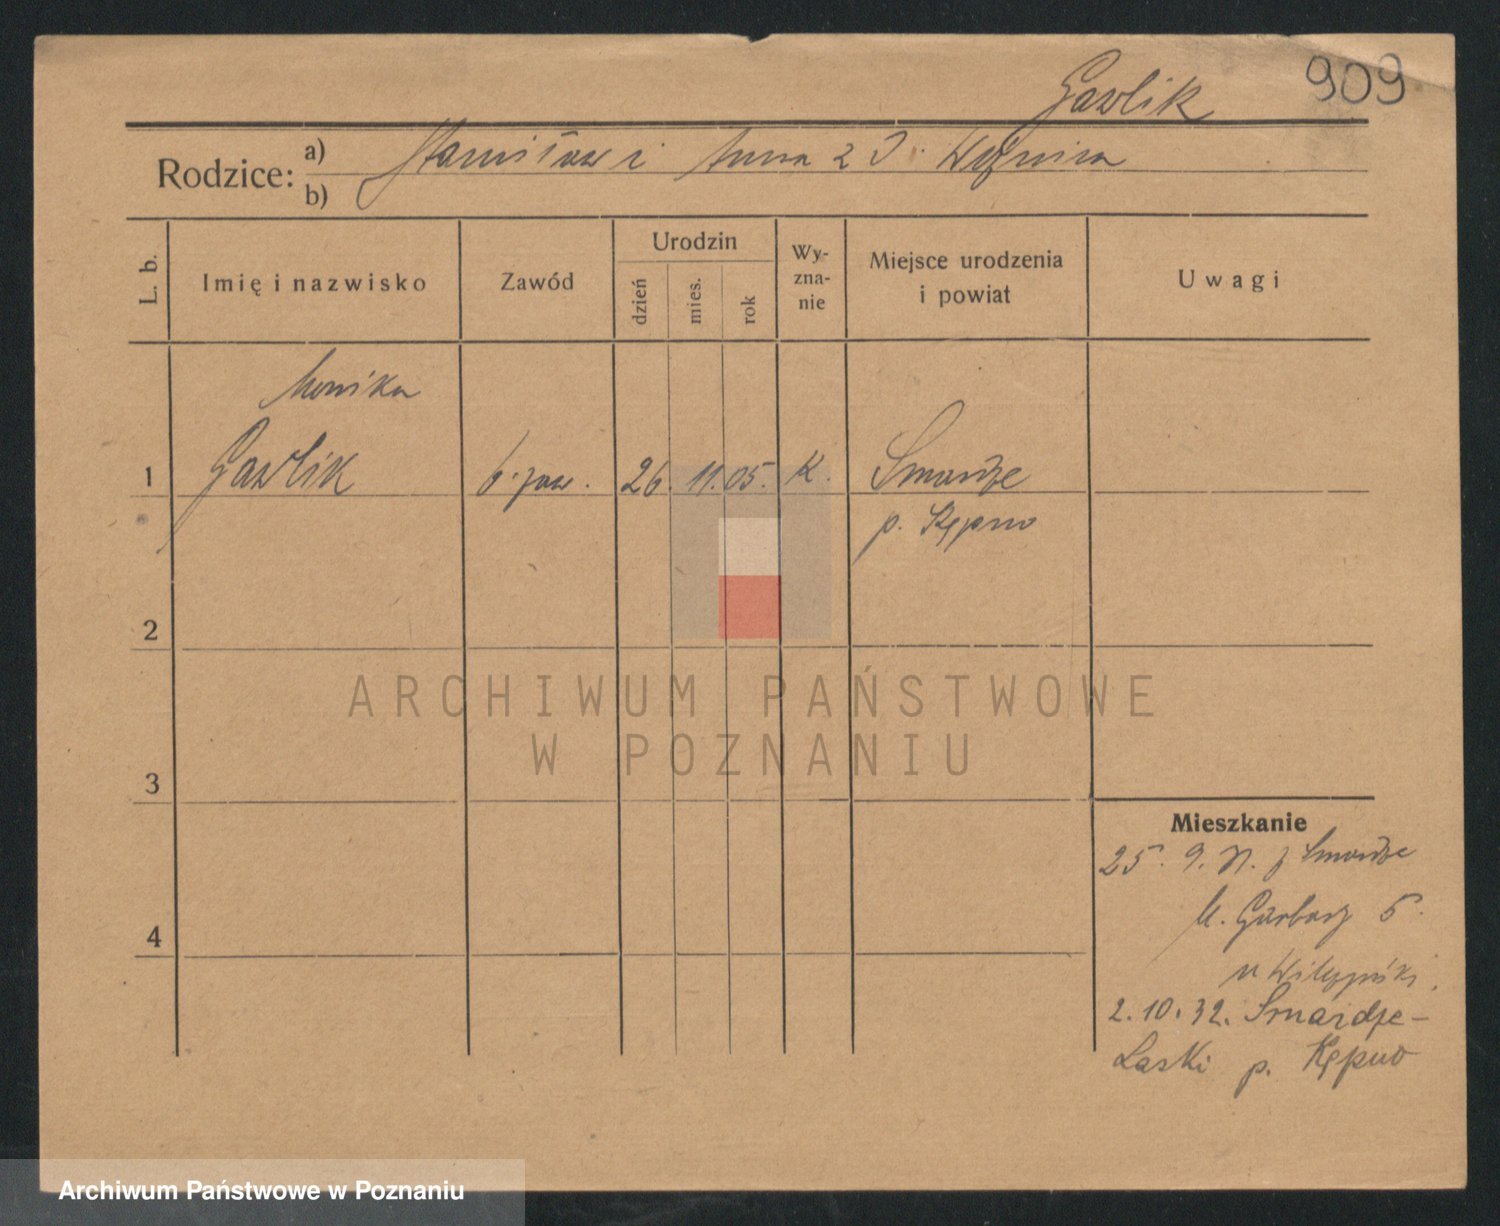 Gawlik 909
Rodzice: a) Stanisław i Anna z d.
b)
L. b. Imię i nazwisko Zawód Urodzin dzień mies. rok Wy-zna-nie Miejsce urodzenia i powiat Uwagi
Monika
1 Gawlik b. zaw. 26. 11. 05. K. Smardze
p. Kępno
2
ARCHIWUM PAŃSTWOWE
W POZNANIU
3
Mieszkanie
25. 9. z Smardze
Garbary 5.
4
u
2. 10. 32. Smardze-
Laski p. Kępno
Archiwum Państwowe w Poznaniu